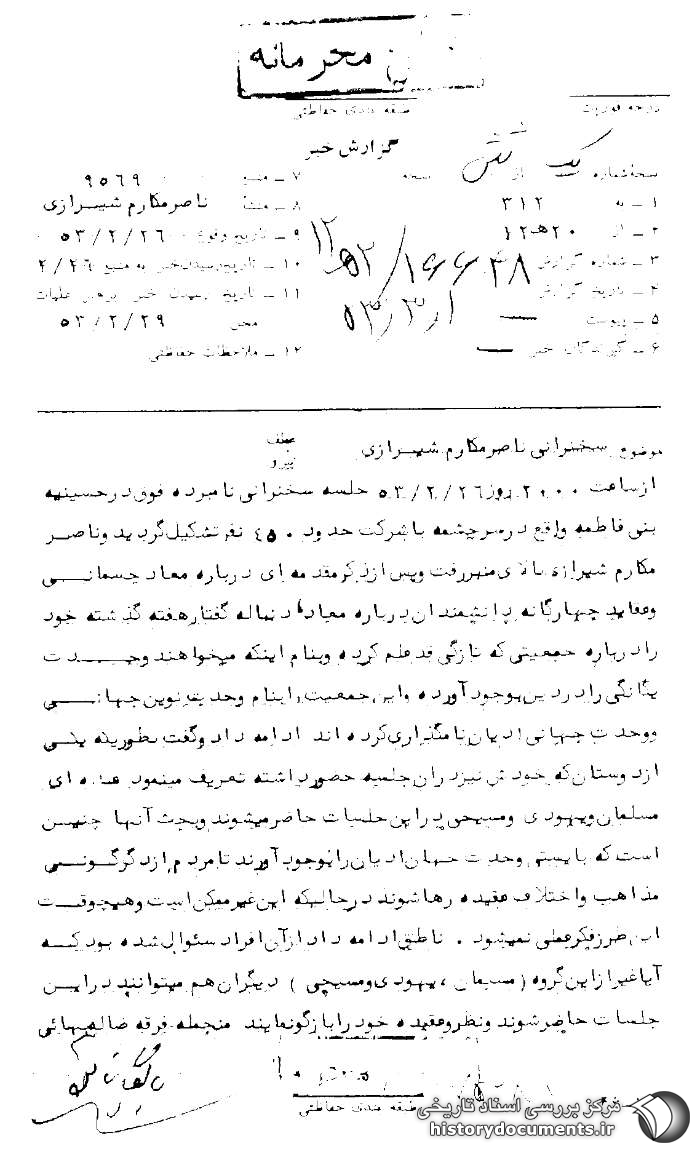 محرمانه
درجه فوریت
طبقه بندی حفاظتی
گزارش خبر
نسخه شماره یک از شش نسخه
۷ ـ منبع ۹۵۶۹
۱ ـ به ۳۱۲
۸ ـ منشأ ناصر مکارم شیرازی
۲ ـ از ۲۰ هـ ۱۲
۹ ـ تاریخ وقوع ۵۳/۲/۲۶
۳ ـ شماره گزارش
۱۰ ـ تاریخ رسیدن خبر به منبع ۲/۲۶
۴ ـ تاریخ گزارش ۵۳/۳/۱
۱۱ ـ تاریخ رسیدن خبر برهبر عملیات
۵ ـ پیوست ــ
محل ۵۳/۲/۲۹
۶ ـ گیرندگان خبر ــ
۱۲ ـ ملاحظات حفاظتی
موضوع سخنرانی ناصر مکارم شیرازی
عطف
پیرو
از ساعت ۲۰۰۰ روز ۵۳/۲/۲۶ جلسه سخنرانی نامبرده فوق در حسینیه
بنی فاطمه واقع در سرچشمه با شرکت حدود ۴۵۰ نفر تشکیل گردید و ناصر
مکارم شیرازی بالای منبر رفت و پس از ذکر مقدمه ای درباره معاد جسمانی
و عقاید چهارگانه دانشمندان درباره معاد دنباله گفتار هفته گذشته خود
را درباره جمعیتی که تازگی قد علم کرده و بنام اینکه میخواهند وحدت
یگانگی را در دین بوجود آورده و این جمعیت را بنام وحدت نوین جهانی
و وحدت جهانی ادیان نامگذاری کرده اند ادامه داد و گفت بطوریکه یکی
از دوستان که خودش نیز در آن جلسه حضور داشته تعریف مینمود عده ای
مسلمان و یهودی و مسیحی در این جلسات حاضر میشوند و بحث آنها چنین
است که بایستی وحدت جهان ادیان را بوجود آورند تا مردم از دگرگونی
مذاهب و اختلاف عقیده رها شوند درحالیکه این غیر ممکن است و هیچوقت
این طرز فکر عملی نمیشود . ناطق ادامه داد از آن افراد سئوال شده بود که
آیا غیر از این گروه ( مسلمان ، یهودی و مسیحی ) دیگران هم میتوانند در این
جلسات حاضر شوند و نظر و عقیده خود را بازگو نمایند منجمله فرقه ضاله بهائی
طبقه بندی حفاظتی
مرکز بررسی اسناد تاریخی
historydocuments.ir